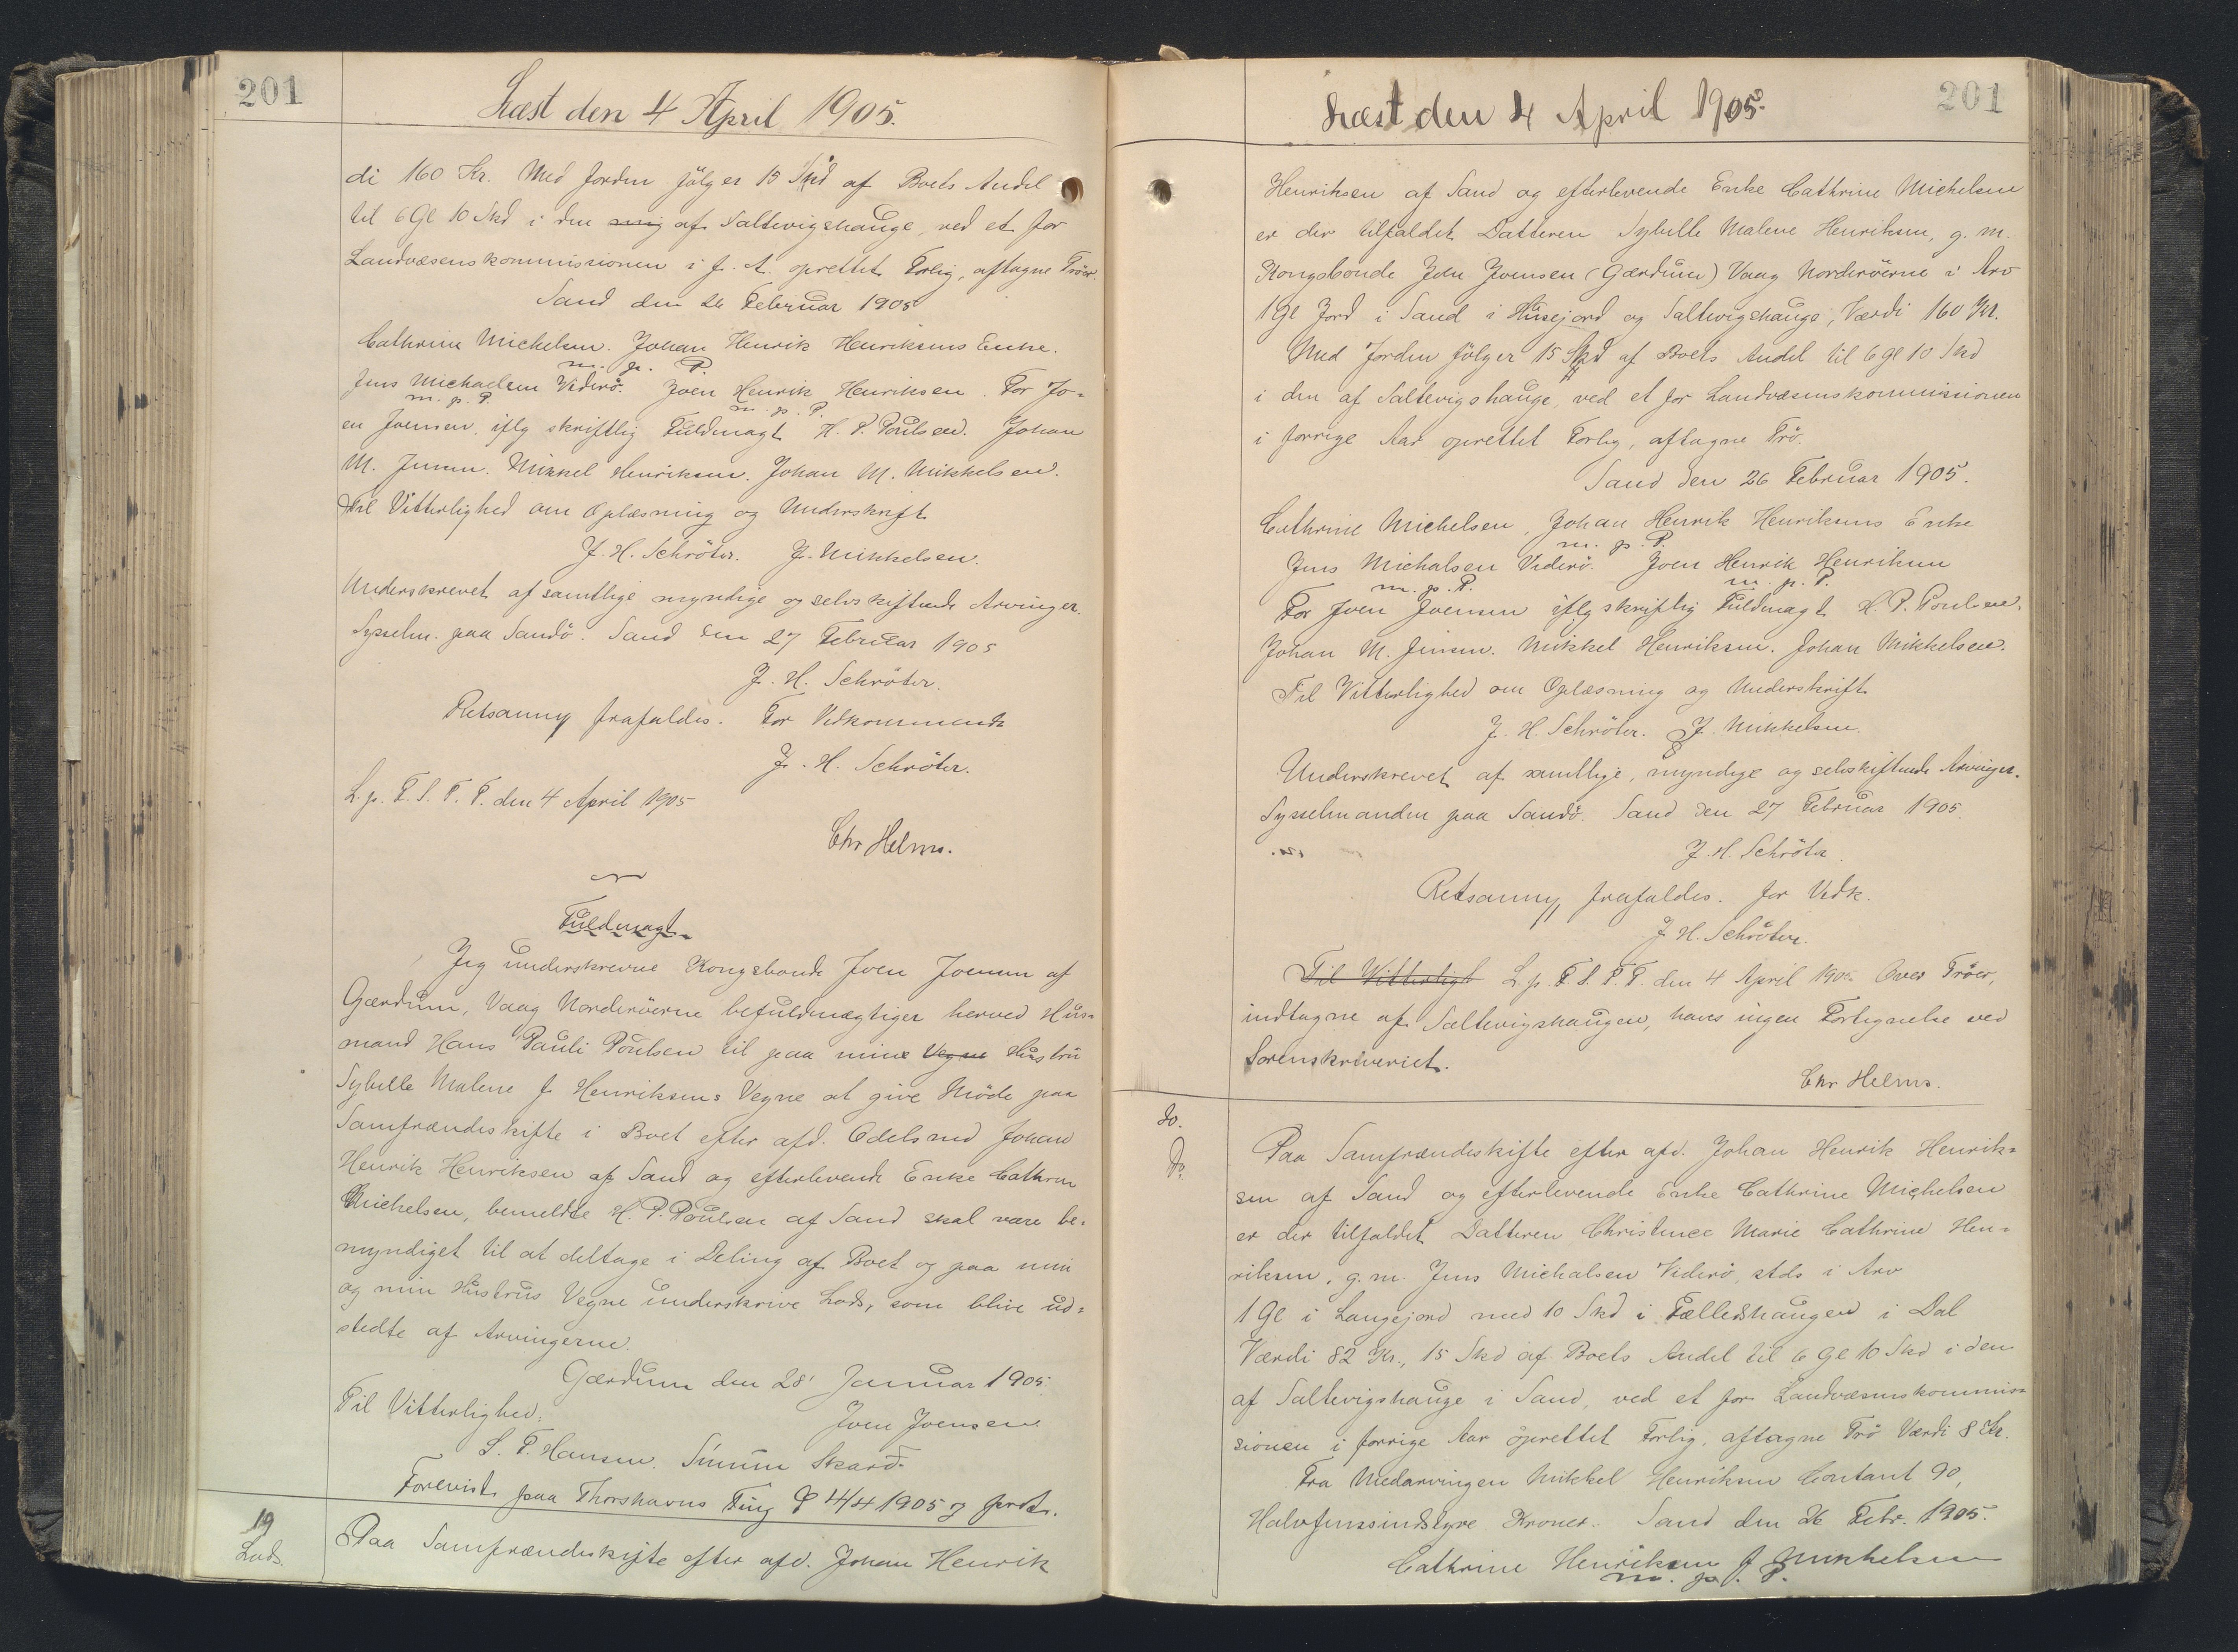 201
Læst den 4 April 1905.
di 160 Kr. Med Jorden følger 15 Skd af Boets Andel
til 6 Gl 10 Skd i den af Saltevigshauge, ved et for
Landvæsenskommissionen i f. A. oprettet Forlig, aftagne Tröer.
Sand den 26 Februar 1905
Cathrine Michelsen. Johan Henrik Henriksens Enke.
m. p. P.
Jens Michaelsen Viderö. Joen Henrik Henriksen. For Jo-
m. p. P. m. p. P.
en Joensen, iflg skriftlig Fuldmagt H. P. Poulsen. Johan
M. Jensen. Mikkel Henriksen. Johan M. Mikkelsen.
Til Vitterlighed om Oplæsning og Underskrift
J. H. Schröter. J. Mikkelsen.
Underskrevet af samtlige myndige og selvskiftende Arvinger.
Sysselm. paa Sandö. Sand den 27 Februar 1905
J. H. Schröter.
Retsanm frafaldes. For Vedkommende
J. H. Schröter.
L. p. T. S. T. T. den 4 April 1905
Chr Helms.
Fuldmagt
Jeg underskrevne Kongsbonde Joen Joensen af
Gærdum, Vaag Norderöerne befuldmægtiger herved Hus-
mand Hans Pauli Poulsen til paa mine Vegne Hustru
Sybille Malene f Henriksens Vegne at give Möde paa
Samfrændeskifte i Boet efter afd. Odelsmd Johan
Henrik Henriksen af Sand og efterlevende Enke Cathrin
Michelsen, bemeldte H. P. Poulsen af Sand skal være be-
myndiget til at deltage i Deling af Boet og paa min
og min Hustrus Vegne underskrive Lods, som blive ud-
stedte af Arvingerne.
Gærdum den 28' Januar 1905.
Til Vitterlighed: Joen Joensen.
S. P. Hansen. Simun Skard.
Forevist paa Thorshavns Ting d 4/4 1905 og prot.
19
Lods.
Paa Samfrændeskifte efter afd. Johan Henrik
201
Læst den 4 April 1905.
Henriksen af Sand og efterlevende Enke Cathrine Michelsen
er der tilfaldet Datteren Sybille Malene Henriksen, g. m.
Kongsbonde Joen Joensen (Gærdum) Vaag Norderöerne i Arv
1 Gl Jord i Sand i Husejord og Saltevigshauge, Værdi 160 Kr.
Med Jorden følger 15 Skd af Boets Andel til 6 Gl 10 Skd
i den af Saltevigshauge, ved et for Landvæsenskommissionen
i forrige Aar oprettet Forlig, aftagne Trö.
Sand den 26 Februar 1905.
Cathrine Michelsen, Johan Henrik Henriksens Enke
m. p. P.
Jens Michalsen Viderö. Joen Henrik Henriksen
m. p. P. m. p. P.
For Joen Joensen iflg skriftlig Fuldmagt H. P. Poulsen.
Johan M. Jensen. Mikkel Henriksen. Johan Mikkelsen.
Til Vitterlighed om Oplæsning og Underskrift
J. H. Schröter. J. Mikkelsen.
Underskrevet af samtlige, myndige og selvskiftende Arvinger.
Sysselmanden paa Sandö. Sand den 27 Februar 1905.
J. H. Schröter.
Retsanm frafaldes. for Vedk.
J. H. Schröter.
Til Vitterligh L. p. T. S. T. T. den 4 April 1905. Over Tröer,
indtagne af Saltevigshaugen, haves ingen Fortegnelse ved
Sorenskriveriet.
Chr Helms.
20.
Do.
Paa Samfrændeskifte efter afd. Johan Henrik Henrik-
sen af Sand og efterlevende Enke Cathrine Michelsen
er der tilfaldet Datteren Christence Marie Cathrine Hen-
riksen, g. m. Jens Michalsen Viderö, stds i Arv
1 Gl i Langejord med 10 Skd i Fælledshaugen i Dal
Værdi 82 Kr., 15 Skd af Boets Andel til 6 Gl 10 Skd i den
af Saltevigshauge i Sand, ved et for Landvæsenskommis-
sionen i forrige Aar oprettet Forlig, aftagne Trö Værdi 8 Kr.
Fra Medarvingen Mikkel Henriksen Contant 90,
Halvfemsindstyve Kroner. Sand den 26 Febr. 1905.
Cathrine Henriksen f Mikkelsen
m. p. P.